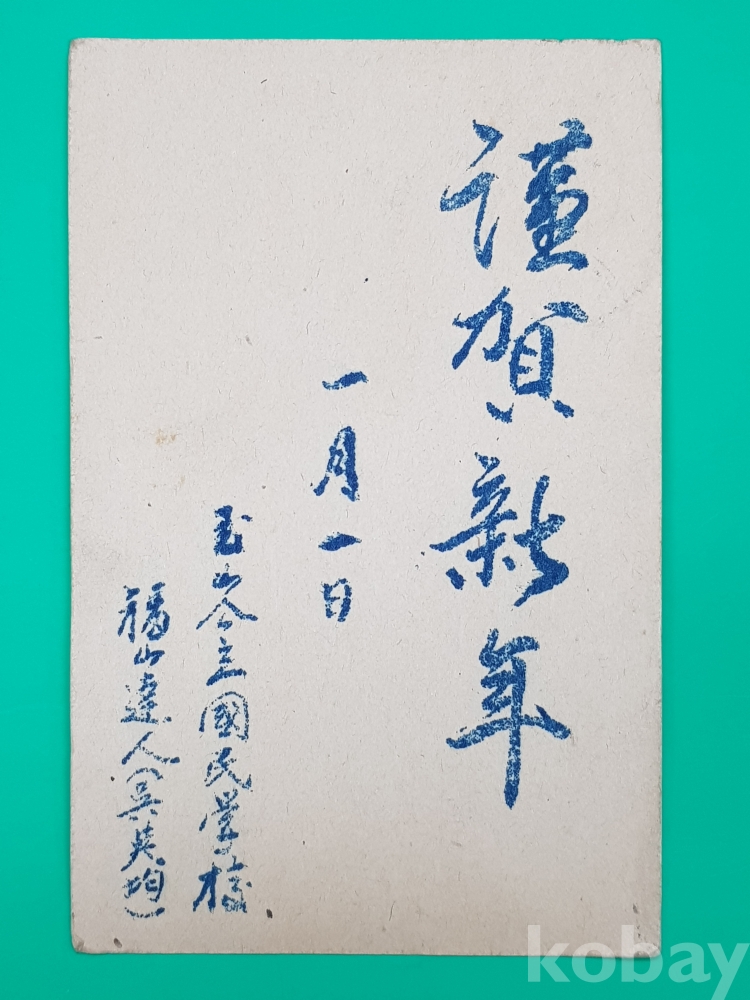 謹賀新年
一月一日
玉山公立國民學校
福山達人(吳英均)
kobay